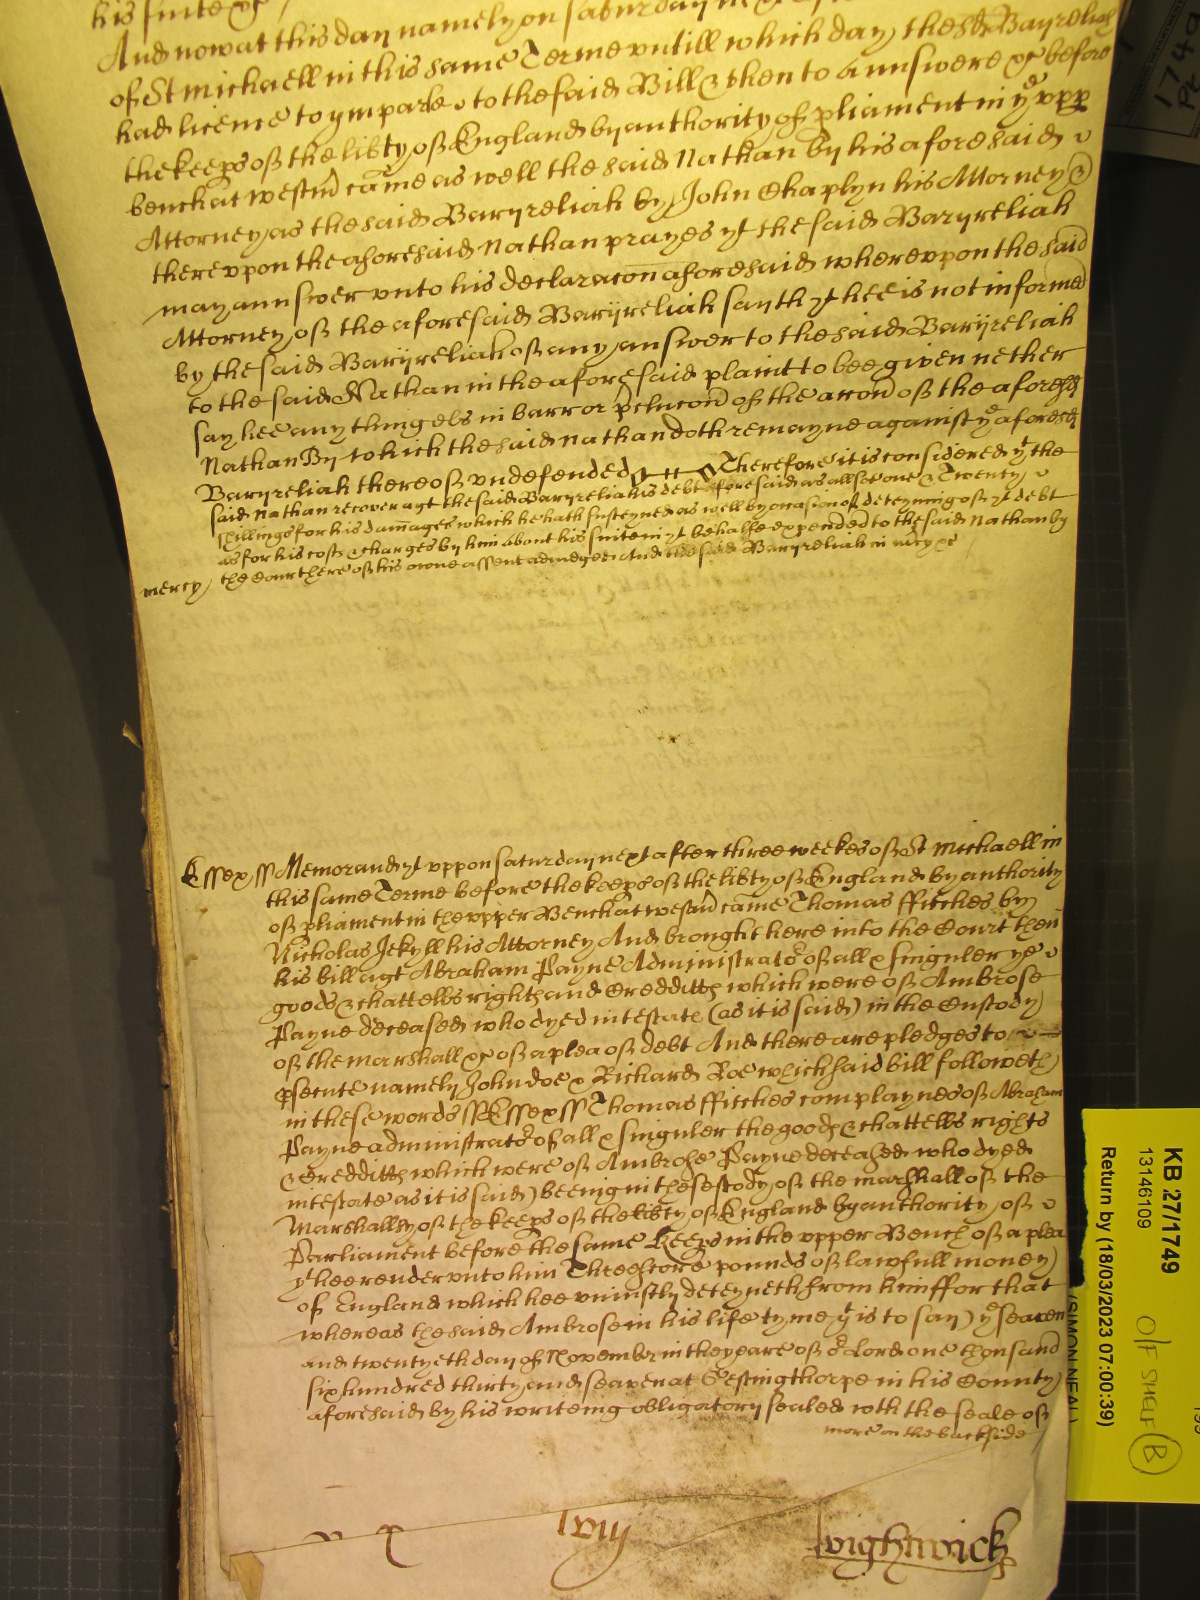 his suite &c
And now at this day namely on Saturday next
of St Michaell in this same Terme untill which day the sd Baryreliah
had license to ymparle to the said Bill & then to Annswere &c before
the keeps of the libty of England by authority of pliament in ye upp
bench at westmr came as well the said Nathan by his aforesaid
Attorney as the said Baryreliah by John Chaplyn his Attorney &
thereupon the aforesaid Nathan prayes yt the said Baryreliah
may annswer unto his declaracon aforesaid whereupon the said
Attorney of the aforesaid Baryreliah sayth yt hee is not informed
by the said Baryreliah of any answer to the said Baryreliah
to the said Nathan in the aforesaid plaint to bee given nether
say hee any thing els in barr or pclucon of the accon of the aforesd
Nathan By which the said Nathan doth remayne against ye aforesd
Baryreliah thereof undefended Therefore it is considered yt the
said Nathan recover agt the said Baryreliah his debt aforesaid as allsoe one & Twenty
shillings for his damages which he hath susteyned as well by occasion of deteyning of yt debt
as for his costs & charges by him about his suite in yt behalfe expended to the said Nathan by
mercy the Court here of his owne assent adiudged And the said Baryreliah in mercy &c
Essex ss Memorand yt uppon Saturday next after three weekes of St Michaell in
this same Terme before the keeps of the libty of England by authority
of pliament in the upper Bench at westmr came Thomas ffitches by
Nicholas Jekyll his Attorney And brought here into the Court then
his bill agt Abraham Payne Administrator of all & singuler ye
goods & chattells rights and Creditts which were of Ambrose
Payne deceased who dyed intestate (as it is said) in the Custody
of the marshall &c of a plea of debt And there are pledges to
psecute namely John doe & Richard Roe which said bill followeth
in these words ss Essex ss Thomas ffitches complaynes of Abraham
Payne administrator of all & singuler the goods & chattells rights
& Creditts which were of Ambrose Payne deceased who dyed
intestate as it is said) beeing in the custody of the marshall of the
Marshallsy of the keeps of the libty of England by authority of
Parliament before the same keeps in the upper Bench of a plea
yt hee render unto him Threescore pounds of lawfull money
of England which hee uniustly deteyneth from him ffor that
whereas the said Ambrose in his life tyme yt is to say) ye seaven
and twentyeth day of November in the yeare of or Lord one thousand
six hundred thirty and seaven at Gestingthorpe in his County
aforesaid by his writeing obligatory sealed wth the seale of
more on the backside
lviij
Wightwick
KB 27/1749
13146109
Return by (18/03/2023 07:00:39)
(SIMON NEAL)
O/F SHELF B